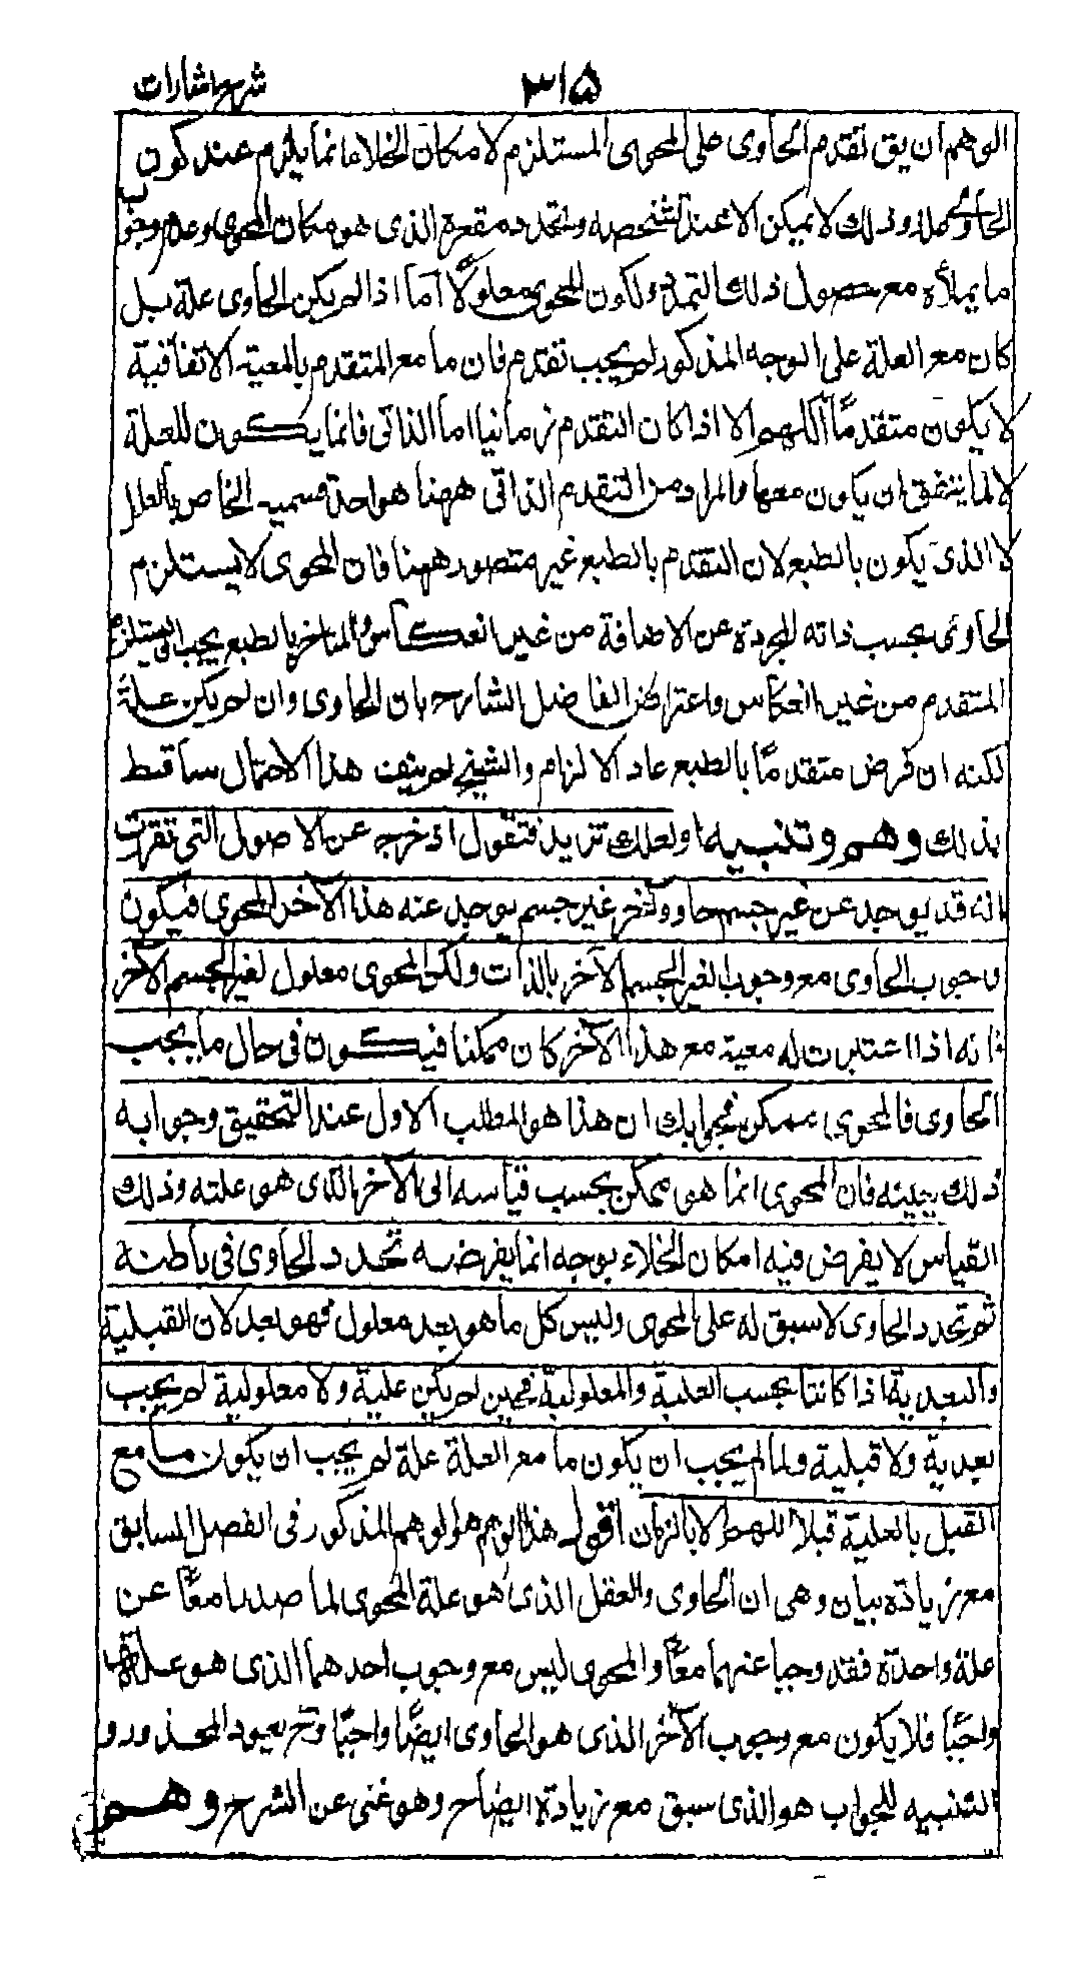 شرح اشارات
۳۱۵
الوهم ان يق تقدم الحاوى على المحوى المستلزم لامكان الخلاء انما يلزم عند كون
الحاوى علة وذلك لا يمكن الا عند تشخصه وتحدد مقعره الذى هو مكان المحوى وعدم وجوب
ما يملأه مع حصول ذلك التحدد لكون المحوى معلولًا أما اذا لم يكن الحاوى علة بل
كان مع العلة على الوجه المذكور لم يجب تقدم فان ما مع المتقدم بالمعية الاتفاقية
لا يكون متقدمًا اللهم الا اذا كان التقدم زمانيا اما الذاتى فانما يكون للعلة
لا لما يتفق ان يكون معها والمراد من التقدم الذاتى ههنا هو احد قسميه الخاص بالعلل
لا الذى يكون بالطبع لان التقدم بالطبع غير متصور ههنا فان المحوى لا يستلزم
الحاوى بحسب ذاته المجردة عن الاضافة من غير انعكاس والمتاخر بالطبع يجب ان يستلزم
المتقدم من غير انعكاس واعتراض الفاضل الشارح بان الحاوى وان لم يكن علة
لكنه ان فرض متقدمًا بالطبع عاد الالزام والشيخ لم ينف هذا الاحتمال ساقط
بذلك وهم وتنبيه او لعلك تزيد فتقول اذ خرج عن الاصول التى تقررت
انه قد يوجد عن غير جسم حاو وآخر غير جسم يوجد عنه هذا الآخر المحوى فيكون
وجوب الحاوى مع وجوب الغير الجسم الآخر بالذات ولكن المحوى معلول لغير الجسم الآخر
فانه اذا اعتبرت له معية مع هذا الآخر كان ممكنا فيكون فى حال ما يجب
الحاوى فالمحوى ممكن فجوابك ان هذا هو المطلب الاول عند التحقيق وجوابه
ذلك بعينه فان المحوى انما هو ممكن بحسب قياسه الى الآخر الذى هو علته وذلك
القياس لا يفرض فيه امكان الخلاء بوجه انما يفرضه تحدد الحاوى فى باطنه
ثم تحدد الحاوى لا سبق له على المحوى وليس كل ما هو بعد معلول فهو بعد لان القبلية
والبعدية اذا كانتا بحسب العلية والمعلولية فحين لم يكن علية ولا معلولية لم يجب
بعدية ولا قبلية ولما لم يجب ان يكون ما مع العلة علة لم يجب ان يكون ما مع
القبل بالعلية قبلا اللهم الا بالزمان اقول هذا الوهم هو الوهم المذكور فى الفصل السابق
مع زيادة بيان وهى ان الحاوى والعقل الذى هو علة المحوى لما صدرا معًا عن
علة واحدة فقد وجبا عنها معًا والمحوى ليس مع وجوب احدهما الذى هو علة
واجبًا فلا يكون مع وجوب الآخر الذى هو الحاوى ايضًا واجبًا وح يعود المحذور و
التنبيه للجواب هو الذى سبق مع زيادة ايضاح وهو غنى عن الشرح وهم